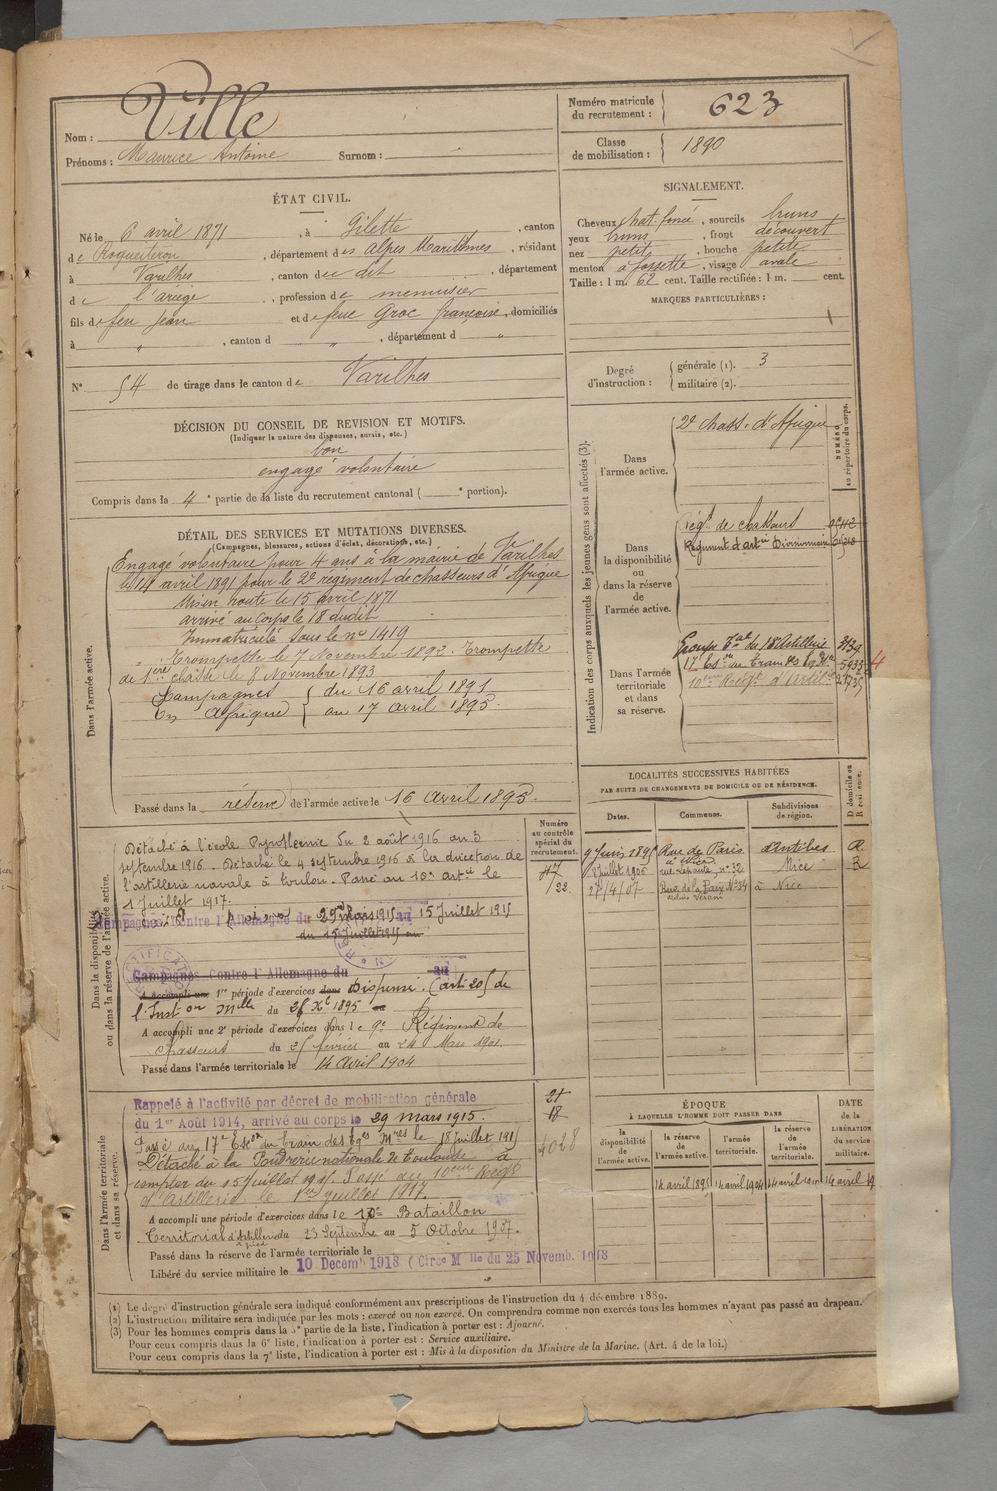 Nom : Ville
Prénoms : Maurice Antoine Surnom :
Numéro matricule du recrutement : 623
Classe de mobilisation : 1890
ÉTAT CIVIL.
Né le 6 avril 1871, à Gilette, canton
de Roquestéron, département des Alpes Maritimes, résidant
à Varilhes, canton du dit, département
de l'ariège, profession de menuisier
fils de feu Jean et de feue Groc françoise, domiciliés
à " , canton d " , département d "
N° 54 de tirage dans le canton de Varilhes
SIGNALEMENT.
Cheveux chat. foncé, sourcils bruns
yeux bruns, front découvert
nez petit, bouche petite
menton à fossette, visage ovale
Taille : 1 m. 62 cent. Taille rectifiée : 1 m. cent.
MARQUES PARTICULIÈRES :
Degré d'instruction : générale (1). 3
militaire (2).
DÉCISION DU CONSEIL DE REVISION ET MOTIFS.
(Indiquer la nature des dispenses, sursis, etc.)
bon
engagé volontaire
Compris dans la 4e partie de la liste du recrutement cantonal ( e portion).
DÉTAIL DES SERVICES ET MUTATIONS DIVERSES.
(Campagnes, blessures, actions d'éclat, décorations, etc.)
Dans l'armée active.
Engagé volontaire pour 4 ans à la mairie de Varilhes
le 14 avril 1891 pour le 2e régiment de chasseurs d'Afrique
Mis en route le 15 avril 1871
arrivé au corps le 18 dudit
Immatriculé sous le no 1419
Trompette le 7 Novembre 1892. Trompette
de 1ère classe le 8 Novembre 1893
Campagnes { du 16 avril 1891
En Afrique { au 17 avril 1895.
Passé dans la réserve de l'armée active le 16 avril 1895.
Indication des corps auxquels les jeunes gens sont affectés (3).
NUMÉRO au répertoire du corps.
Dans l'armée active.
2e chass. d'Afrique
Dans la disponibilité ou dans la réserve de l'armée active.
Régt. de chasseurs
Régiment d'artie Divisionnaire
Dans l'armée territoriale et dans sa réserve.
Groupe Tal du 18e Artillerie
17e Eson du Train des Eq. Mres 5933
10eme Régt d'Artillie
LOCALITÉS SUCCESSIVES HABITÉES
PAR SUITE DE CHANGEMENTS DE DOMICILE OU DE RÉSIDENCE.
Dates. Communes. Subdivisions de région. D domicile ou R résidence.
9 Juin 1895 Rue de Paris d'Antibes
Juillet 1906 n° 32 Nice R
27/4/07 Rue de la Paix N°34 à Nice
Dans la disponibilité ou dans la réserve de l'armée active.
Numéro au contrôle spécial du recrutement.
Détaché à l'école Pyrotechnie du 2 août 1916 au 3
septembre 1916. Détaché le 4 septembre 1916 à la direction de
l'artillerie navale à Toulon. Passé au 10e artie le
1 Juillet 1917.
Campagnes contre l'Allemagne du 29 mars 1915 au 15 Juillet 1915
du 15 Juillet 1915 au
Campagnes contre l'Allemagne du au
A accompli une 1re période d'exercices dans Dispensé. (art. 20) de
l'Inston Mlle du 25 Xe 1895 au
A accompli une 2e période d'exercices dans le 9e Régiment de
chasseurs du 25 février au 24 Mars 1901
Passé dans l'armée territoriale le 14 Avril 1904
Dans l'armée territoriale et dans sa réserve.
Rappelé à l'activité par décret de mobilisation générale
du 1er Août 1914, arrivé au corps le 29 mars 1915.
Passé au 17e Eson du Train des Eqes Mres le 15 juillet 1915
Détaché à la Poudrerie nationale de Toulouse à
compter du 15 juillet 1915. Passé au 10eme Régt
d'Artillerie le 1er juillet 1917.
A accompli une période d'exercices dans le 10e Bataillon
Territorial d'Artillerie à pied du 23 Septembre au 5 Octobre 1907.
Passé dans la réserve de l'armée territoriale le
Libéré du service militaire le 10 Decemb 1918 (Circe Mlle du 25 Novemb. 1918
21
18
4028
ÉPOQUE
À LAQUELLE L'HOMME DOIT PASSER DANS
DATE de la LIBÉRATION du service militaire.
la disponibilité de l'armée active. la réserve de l'armée active. l'armée territoriale. la réserve de l'armée territoriale.
14 avril 1895 14 avril 1904 14 avril 1910 14 avril 19
(1) Le degré d'instruction générale sera indiqué conformément aux prescriptions de l'instruction du 4 décembre 1889.
(2) L'instruction militaire sera indiquée par les mots : exercé ou non exercé. On comprendra comme non exercés tous les hommes n'ayant pas passé au drapeau.
(3) Pour les hommes compris dans la 5e partie de la liste, l'indication à porter est : Ajourné.
Pour ceux compris dans la 6e liste, l'indication à porter est : Service auxiliaire.
Pour ceux compris dans la 7e liste, l'indication à porter est : Mis à la disposition du Ministre de la Marine. (Art. 4 de la loi.)